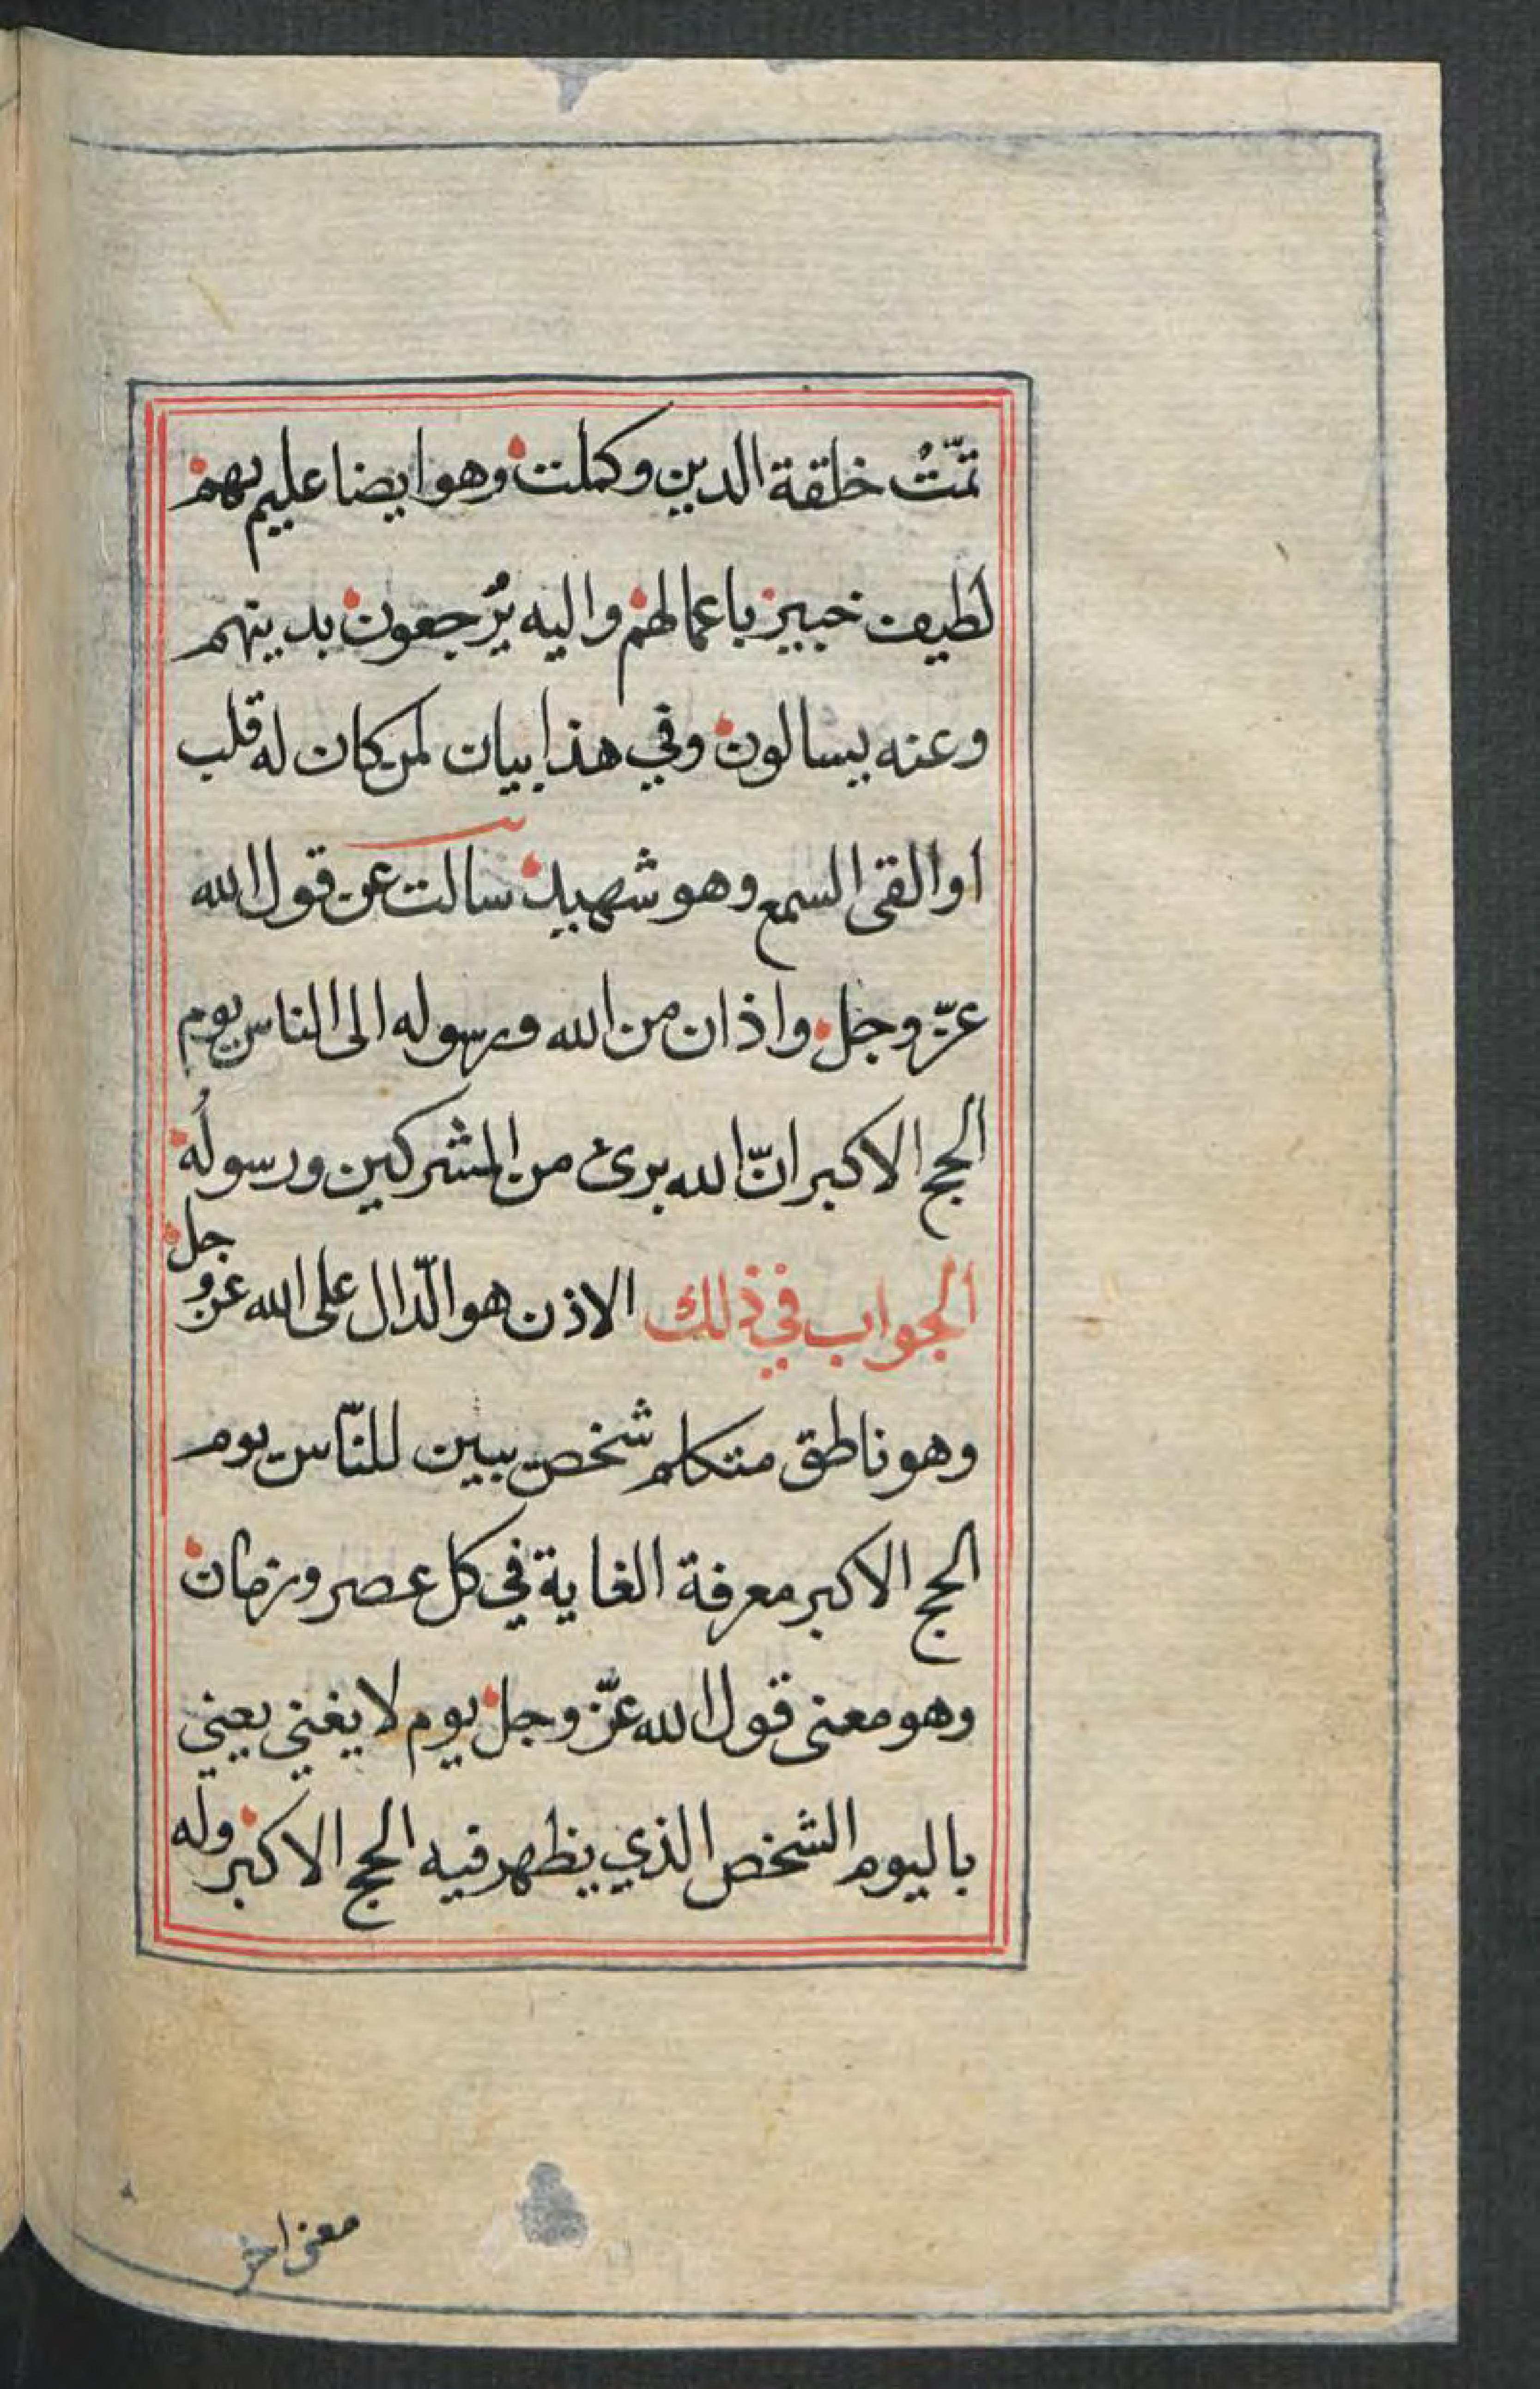 تمّتْ خلقة الدين وكملت وهو ايضا عليم بهم
لطيف خبير باعمالهم واليه يُرجعون بدينهم
وعنه يسالون وفي هذا بيان لمن كان له قلب
او القى السمع وهو شهيد سالت عن قول الله
عزّ وجل واذان من الله ورسوله الى الناس يوم
الحج الاكبر انّ الله برىء من المشركين ورسولُه
الجواب في ذلك الاذن هو الدّال على الله عز وجل
وهو ناطق متكلم شخص يبين للنّاس يوم
الحج الاكبر معرفة الغاية في كل عصر وزمان
وهو معنى قول الله عزّ وجل يوم لا يغني يعني
باليوم الشخص الذي يظهر فيه الحج الاكبر وله
معنى اخر